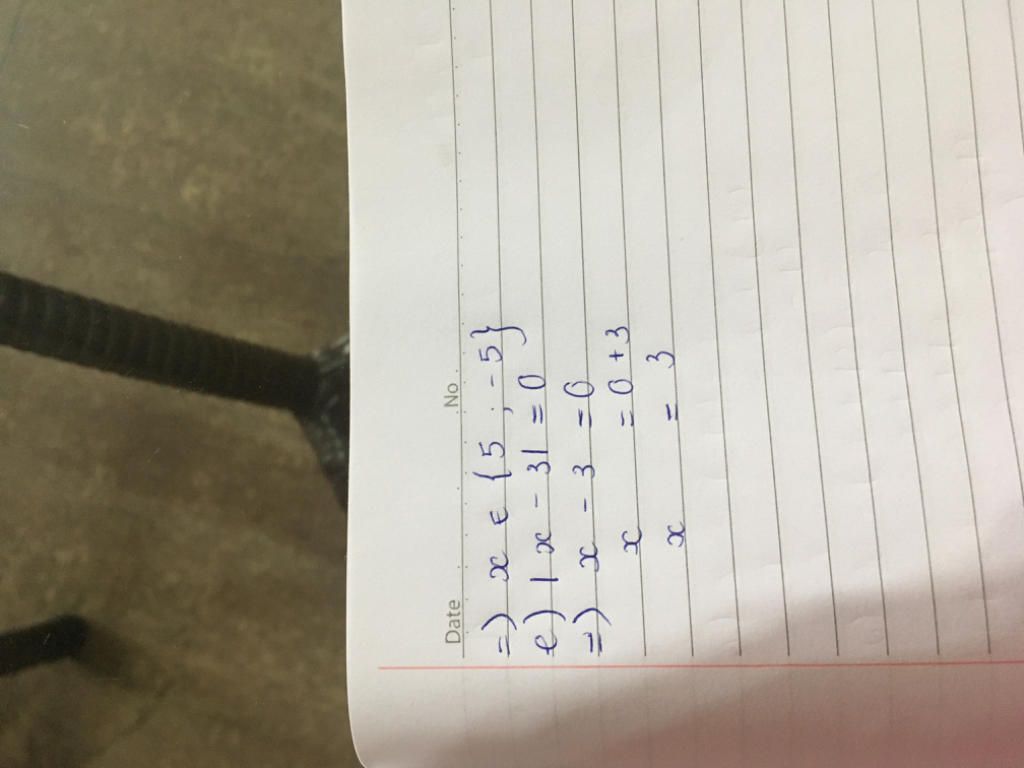 Date No
=) x ∈ {5 ; -5}
e) |x - 3| = 0
=) x - 3 = 0
x = 0 + 3
x = 3